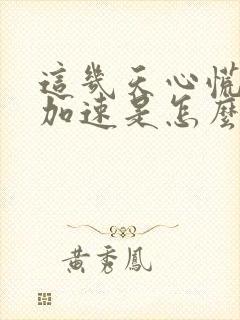 這幾天心慌
加速是怎麼
黃秀鳳